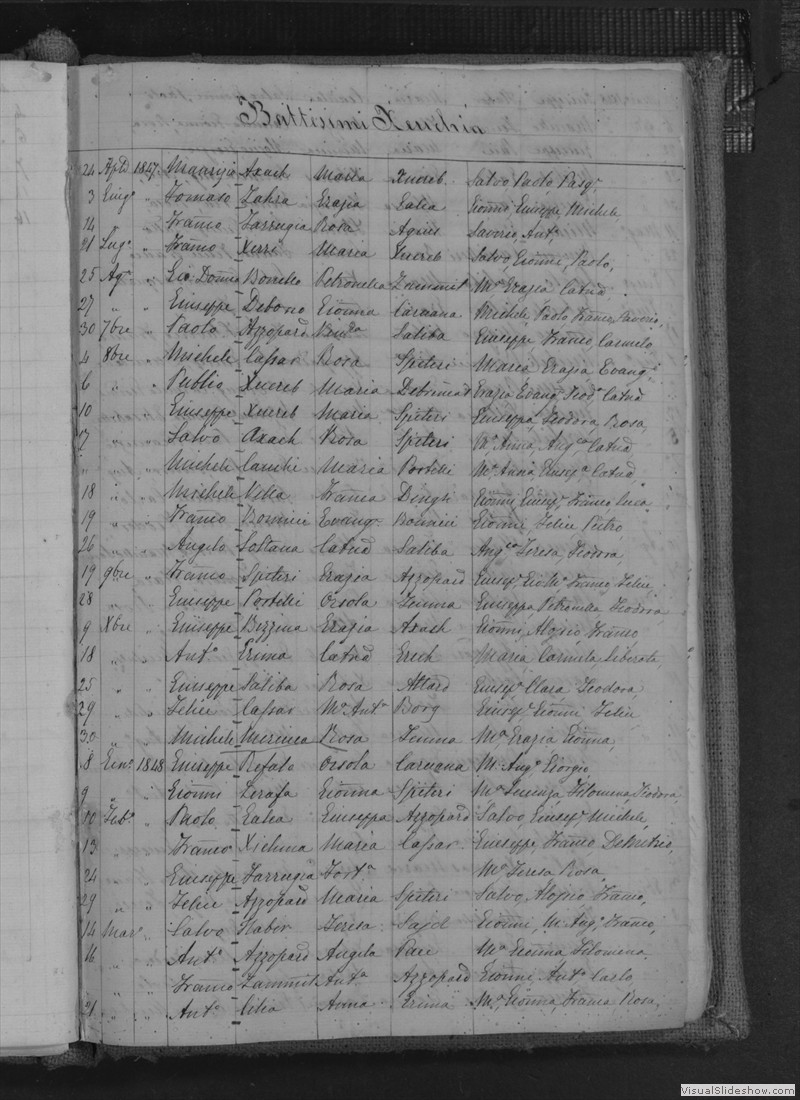 Battisimi Xeuchia
24 Aple 1847 Maurizio Axach Maria Xuereb Salvo Paolo Pasq.
3 Giug° " Tomaso Zahra Grazia Galia Gionni Giuseppe Michele
14 " Franco Farrugia Rosa Agius Saverio Ant°
21 Lug° " Franco Xerri Maria Xuereb Salvo, Gionni, Paolo,
25 Ag° " Gio Domco Bonello Petronella Zammit Ma Grazia Catnd
27 " " Giuseppe Debono Gionna Caruana Michele, Paolo Franco Saverio,
30 7bre " Paolo Azzopard Saliba Giuseppe Franco Carmelo
4 8bre " Michele Cassar Rosa Spiteri Maria Grazia Evanga
6 " " Publio Xuereb Maria Grazia Evang Teoda Catnd
10 " " Giuseppe Xuereb Maria Spiteri Giuseppa, Teodora, Rosa,
17 " " Salvo Axach Rosa Spiteri Ma Anna, Angca Catnd,
" " " Michele Maria Portelli Ma Anna, Giusepa Catnd,
18 " " Michele Vella Franca Dingli Gionni, Giuse. Franco, Luca
19 " Franco Bonnici Evang. Bonnici Gionni, Felice Pietro
26 " " Angelo Soltana Catnd Saliba Angca Teresa, Teodora,
19 9bre " Franco Spiteri Grazia Azzopard Giuse. Gio Ma Franco Felice
28 " " Giuseppe Portelli Orsola Giuseppa Petronella Teodora
9 Xbre " Giuseppe Bezzina Grazia Axach Gionni, Aloisio Franco
18 " " Ant° Grima Catnd Grech Maria Carmela, Liberata,
25 " " Giuseppe Saliba Rosa Attard Giuse. Clara Teodora
29 " " Felice Cassar Ma Anta Borg Giuse. Gionni Felice
30 " " Michele Rosa Ma Grazia Gionna,
8 Gen° 1848 Giuseppe Refalo Orsola Caruana Ma Anga Giorgia
9 " " Gionni Zerafa Gionna Spiteri Ma Filomena, Teodora,
10 Feb° " Paolo Galia Giuseppa Azzopard Salvo, Giuse. Michele,
13 " " Franco Maria Cassar Giuseppe, Franco Demetrio,
24 " " Giuseppe Farrugia Forta Ma Teresa Rosa,
29 " " Felice Azzopard Maria Spiteri Salvo, Aloisio Franco,
14 Mar° " Salvo Nabor Teresa Sajd Gionni, M. Ang. Franco,
16 " " Ant° Azzopard Angela Pace Ma Gionna Filomena,
" " Franco Zammit Anta Azzopard Gionni, Ant° Carlo
21 " " Ant° Cilia Anna Grima Ma Gionna, Franca, Rosa,
VisualSlideshow.com